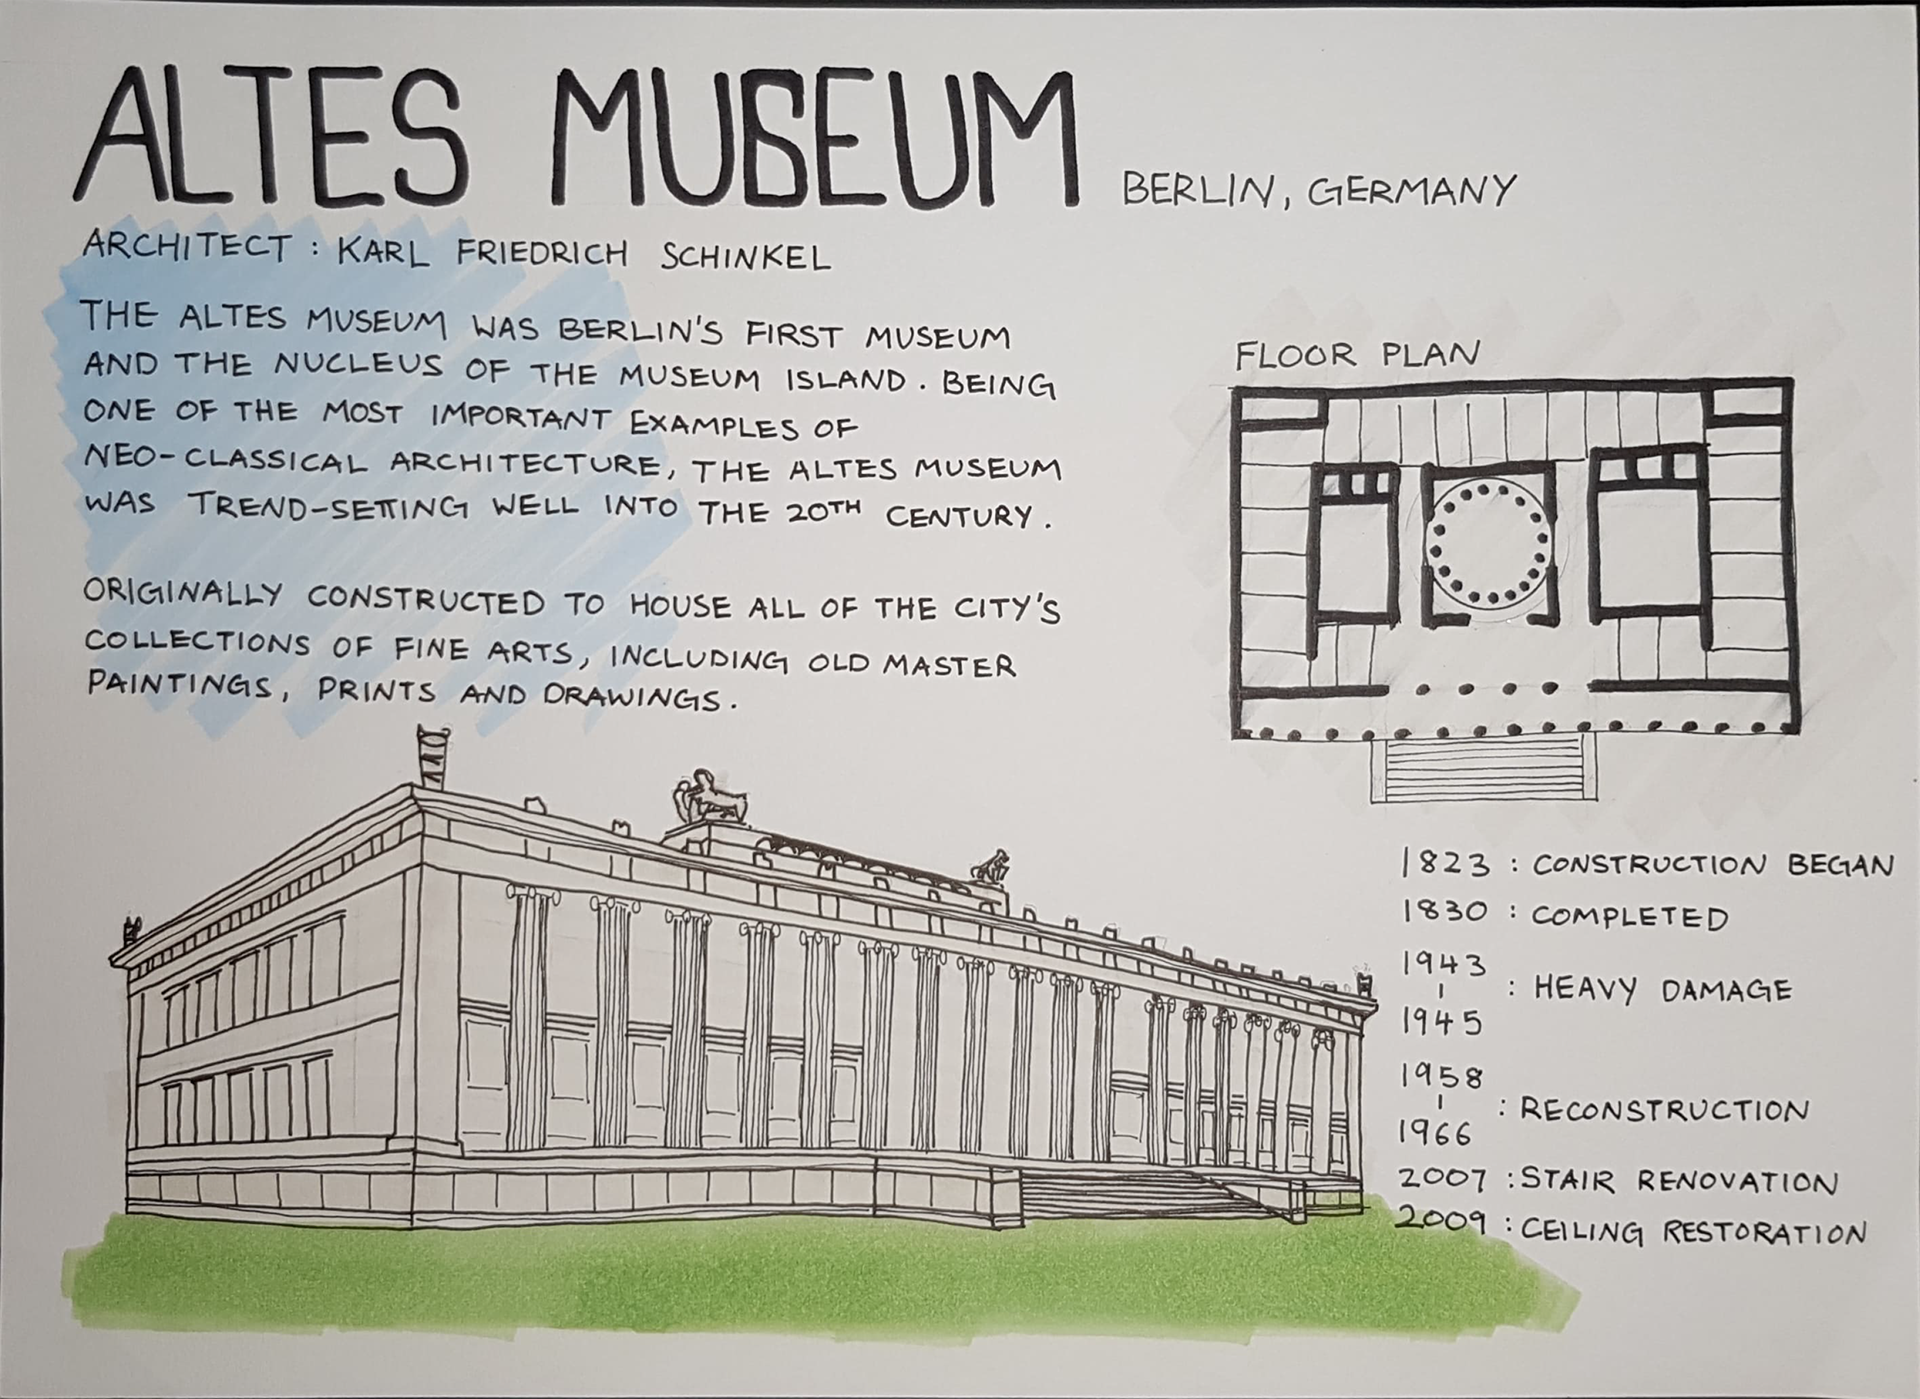 ALTES MUSEUM BERLIN, GERMANY
ARCHITECT : KARL FRIEDRICH SCHINKEL
THE ALTES MUSEUM WAS BERLIN'S FIRST MUSEUM
AND THE NUCLEUS OF THE MUSEUM ISLAND. BEING
ONE OF THE MOST IMPORTANT EXAMPLES OF
NEO-CLASSICAL ARCHITECTURE, THE ALTES MUSEUM
WAS TREND-SETTING WELL INTO THE 20TH CENTURY.
ORIGINALLY CONSTRUCTED TO HOUSE ALL OF THE CITY'S
COLLECTIONS OF FINE ARTS, INCLUDING OLD MASTER
PAINTINGS, PRINTS AND DRAWINGS.
FLOOR PLAN
1823 : CONSTRUCTION BEGAN
1830 : COMPLETED
1943
- : HEAVY DAMAGE
1945
1958
- : RECONSTRUCTION
1966
2007 : STAIR RENOVATION
2009 : CEILING RESTORATION